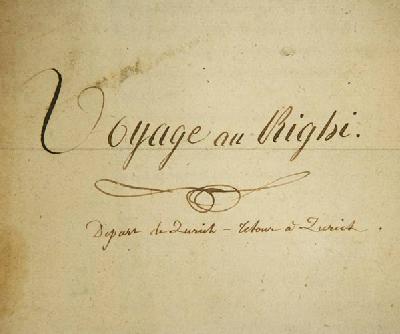 Voyage au Righi.
Depart de Zurich – retour à Zurich.